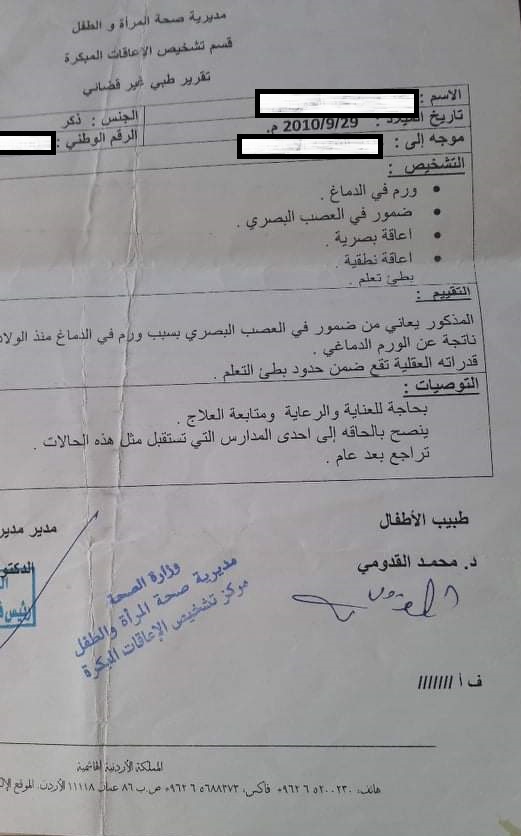 مديرية صحة المرأة و الطفل
قسم تشخيص الإعاقات المبكرة
تقرير طبي غير قضائي
الاسم :
تاريخ الميلاد : 2010/9/29 م. الجنس : ذكر
موجه إلى : الرقم الوطني :
التشخيص :
• ورم في الدماغ .
• ضمور في العصب البصري .
• اعاقة بصرية .
• اعاقة نطقية .
بطئ تعلم .
التقييم :
المذكور يعاني من ضمور في العصب البصري بسبب ورم في الدماغ منذ
ناتجة عن الورم الدماغي .
قدراته العقلية تقع ضمن حدود بطئ التعلم .
التوصيات :
بحاجة للعناية والرعاية ومتابعة العلاج .
ينصح بالحاقه إلى احدى المدارس التي تستقبل مثل هذه الحالات .
تراجع بعد عام .
طبيب الأطفال
د. محمد القدومي
مدير
وزارة الصحة
مديرية صحة المرأة والطفل
مركز تشخيص الإعاقات المبكرة
ف أ ///////
المملكة الأردنية الهاشمية
هاتف: ٥٢٠٠٢٣٠ ٦ ٠٩٦٢ فاكس: ٥٦٨٨٣٧٣ ٦ ٠٩٦٢ ص.ب ٨٦ عمان ١١١١٨ الأردن. الموقع